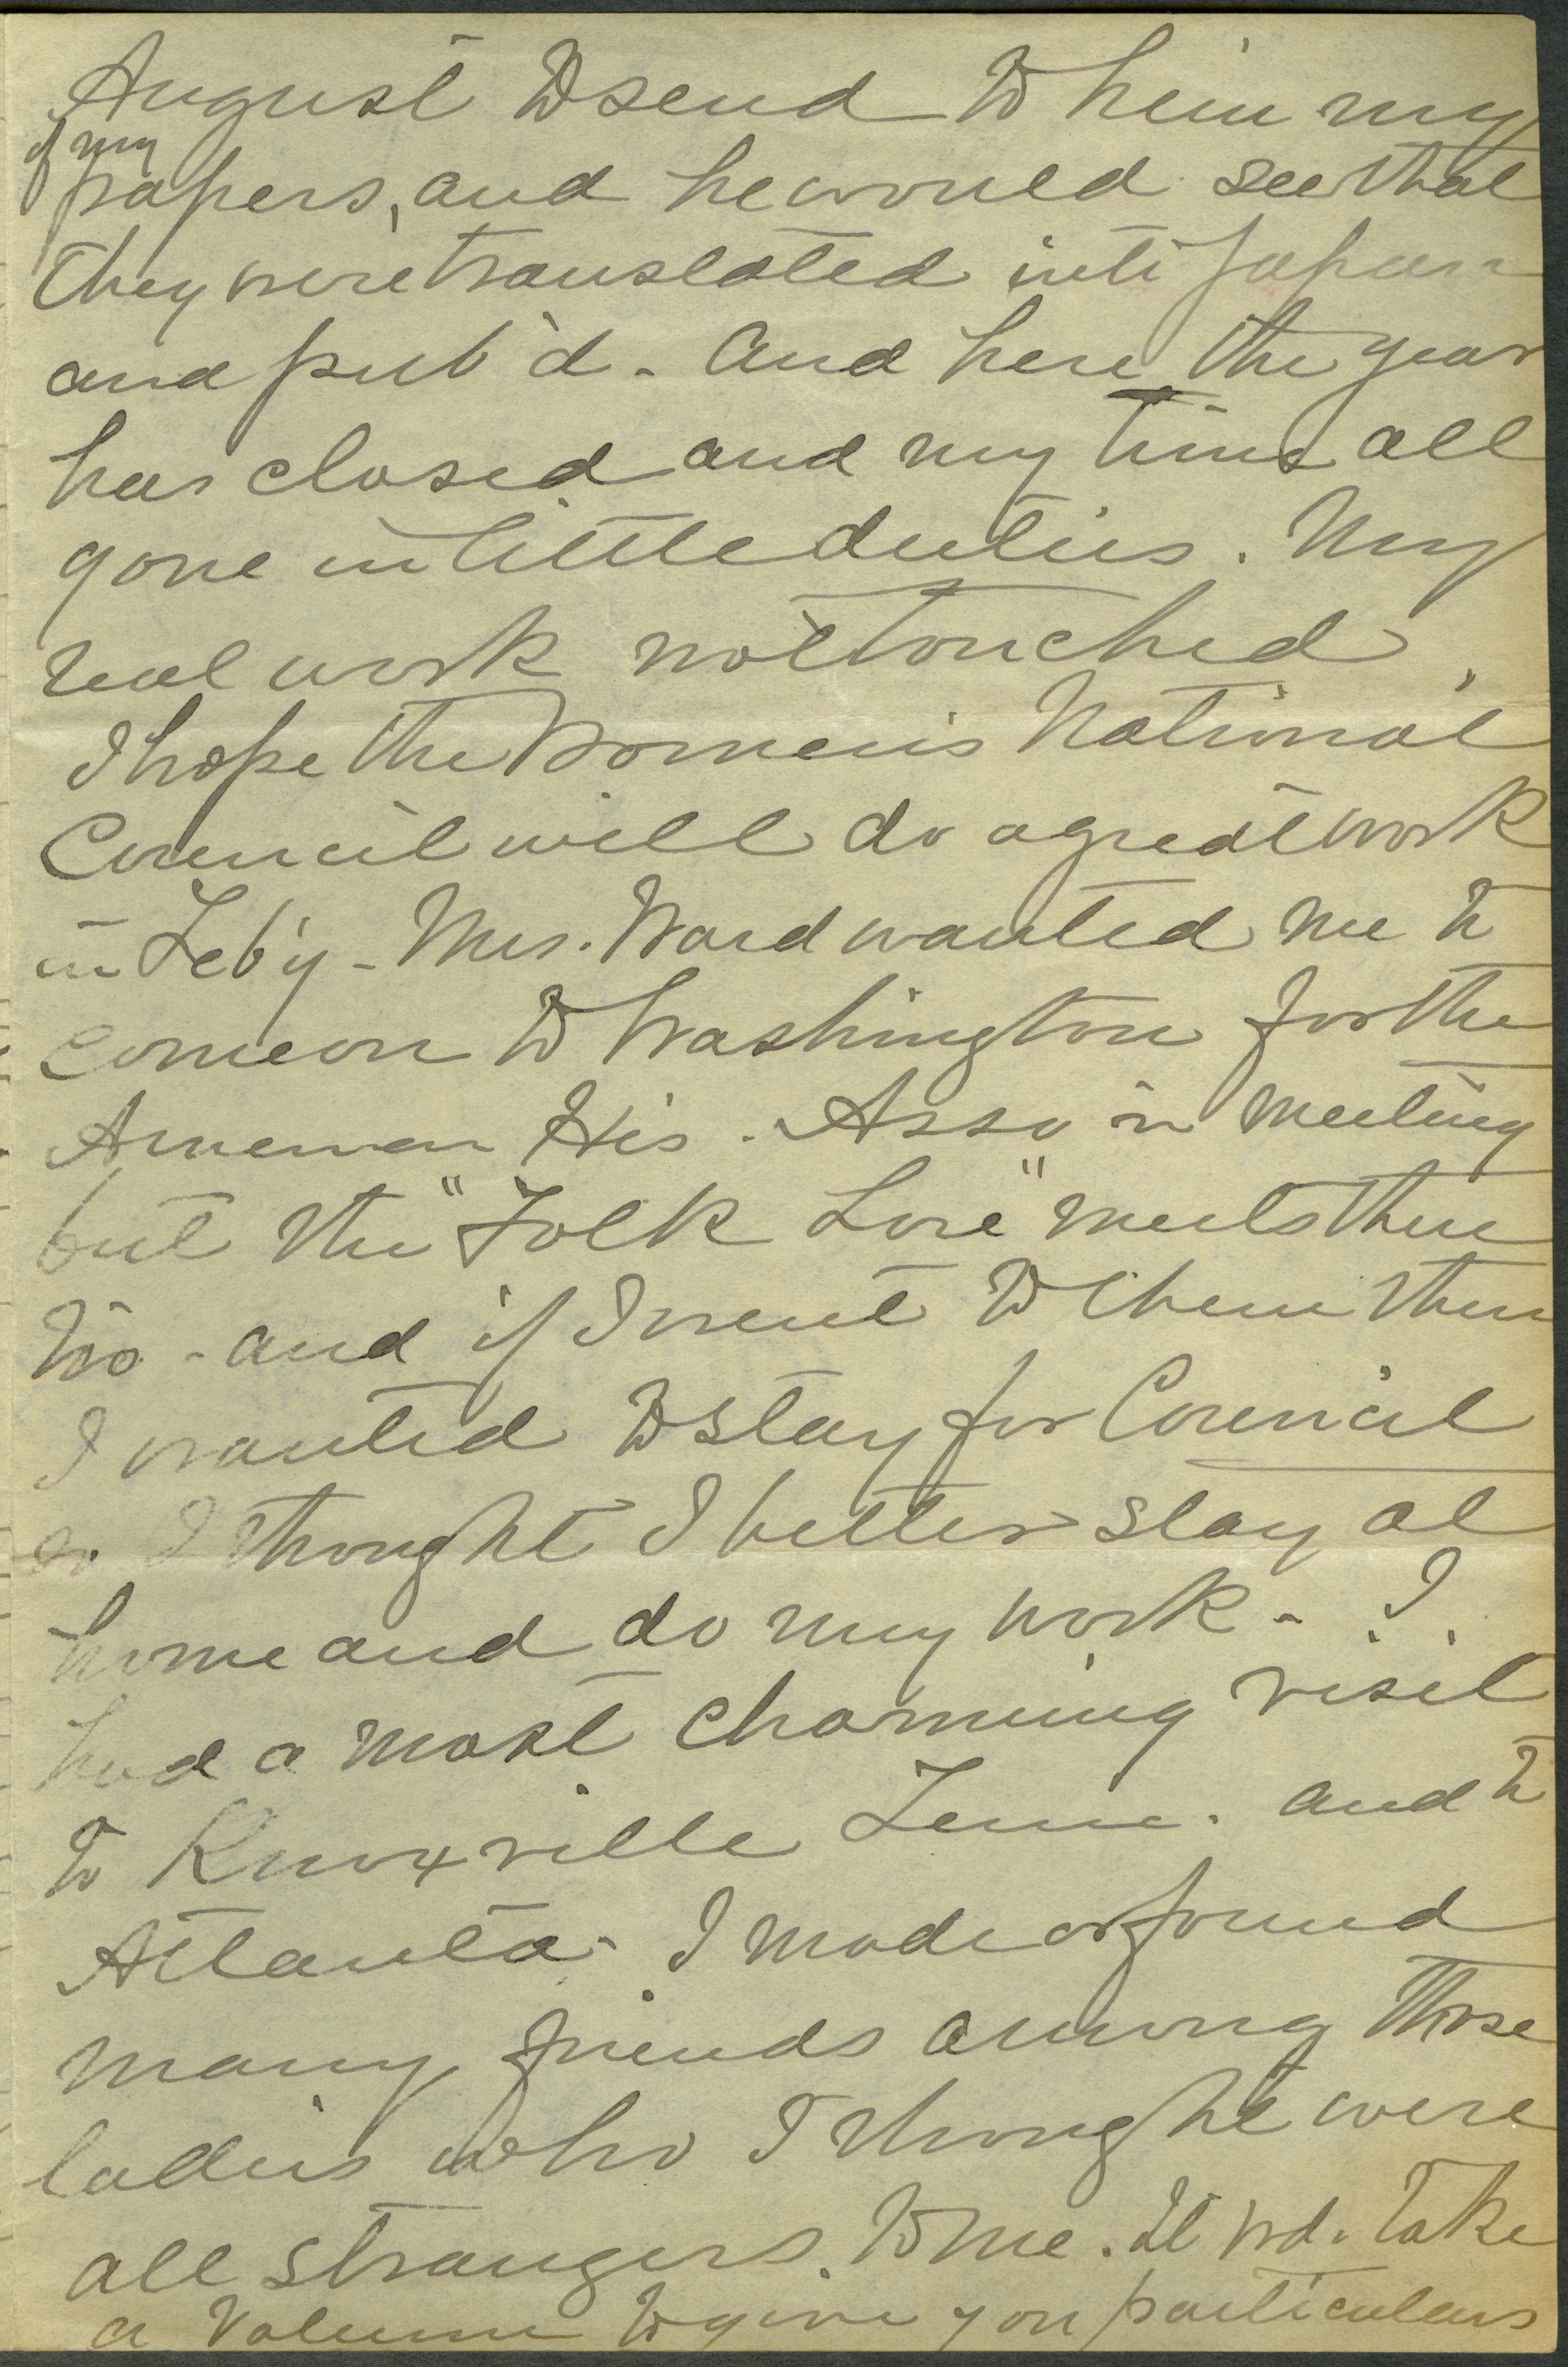 August to send to him my
of my
papers, and he would see that
they were translated into Japan
and pub'd. And here the year
has closed and my time all
gone in little duties. My
real work not touched.
I hope the Women's National
Council will do a great work
in Feb'y - Mrs. Ward wanted me to
come on to Washington for the
American His. Asso'n meeting
but the "Folk Lore" meets there
too - and if I went to them then
I wanted to stay for Council
so I thought I better stay at
home and do my work - I
had a most charming visit
to Knoxville Tenn. and to
Atlanta - I made or found
many friends among those
ladies who I thought were
all strangers to me. It wd. take
a volume to give you particulars